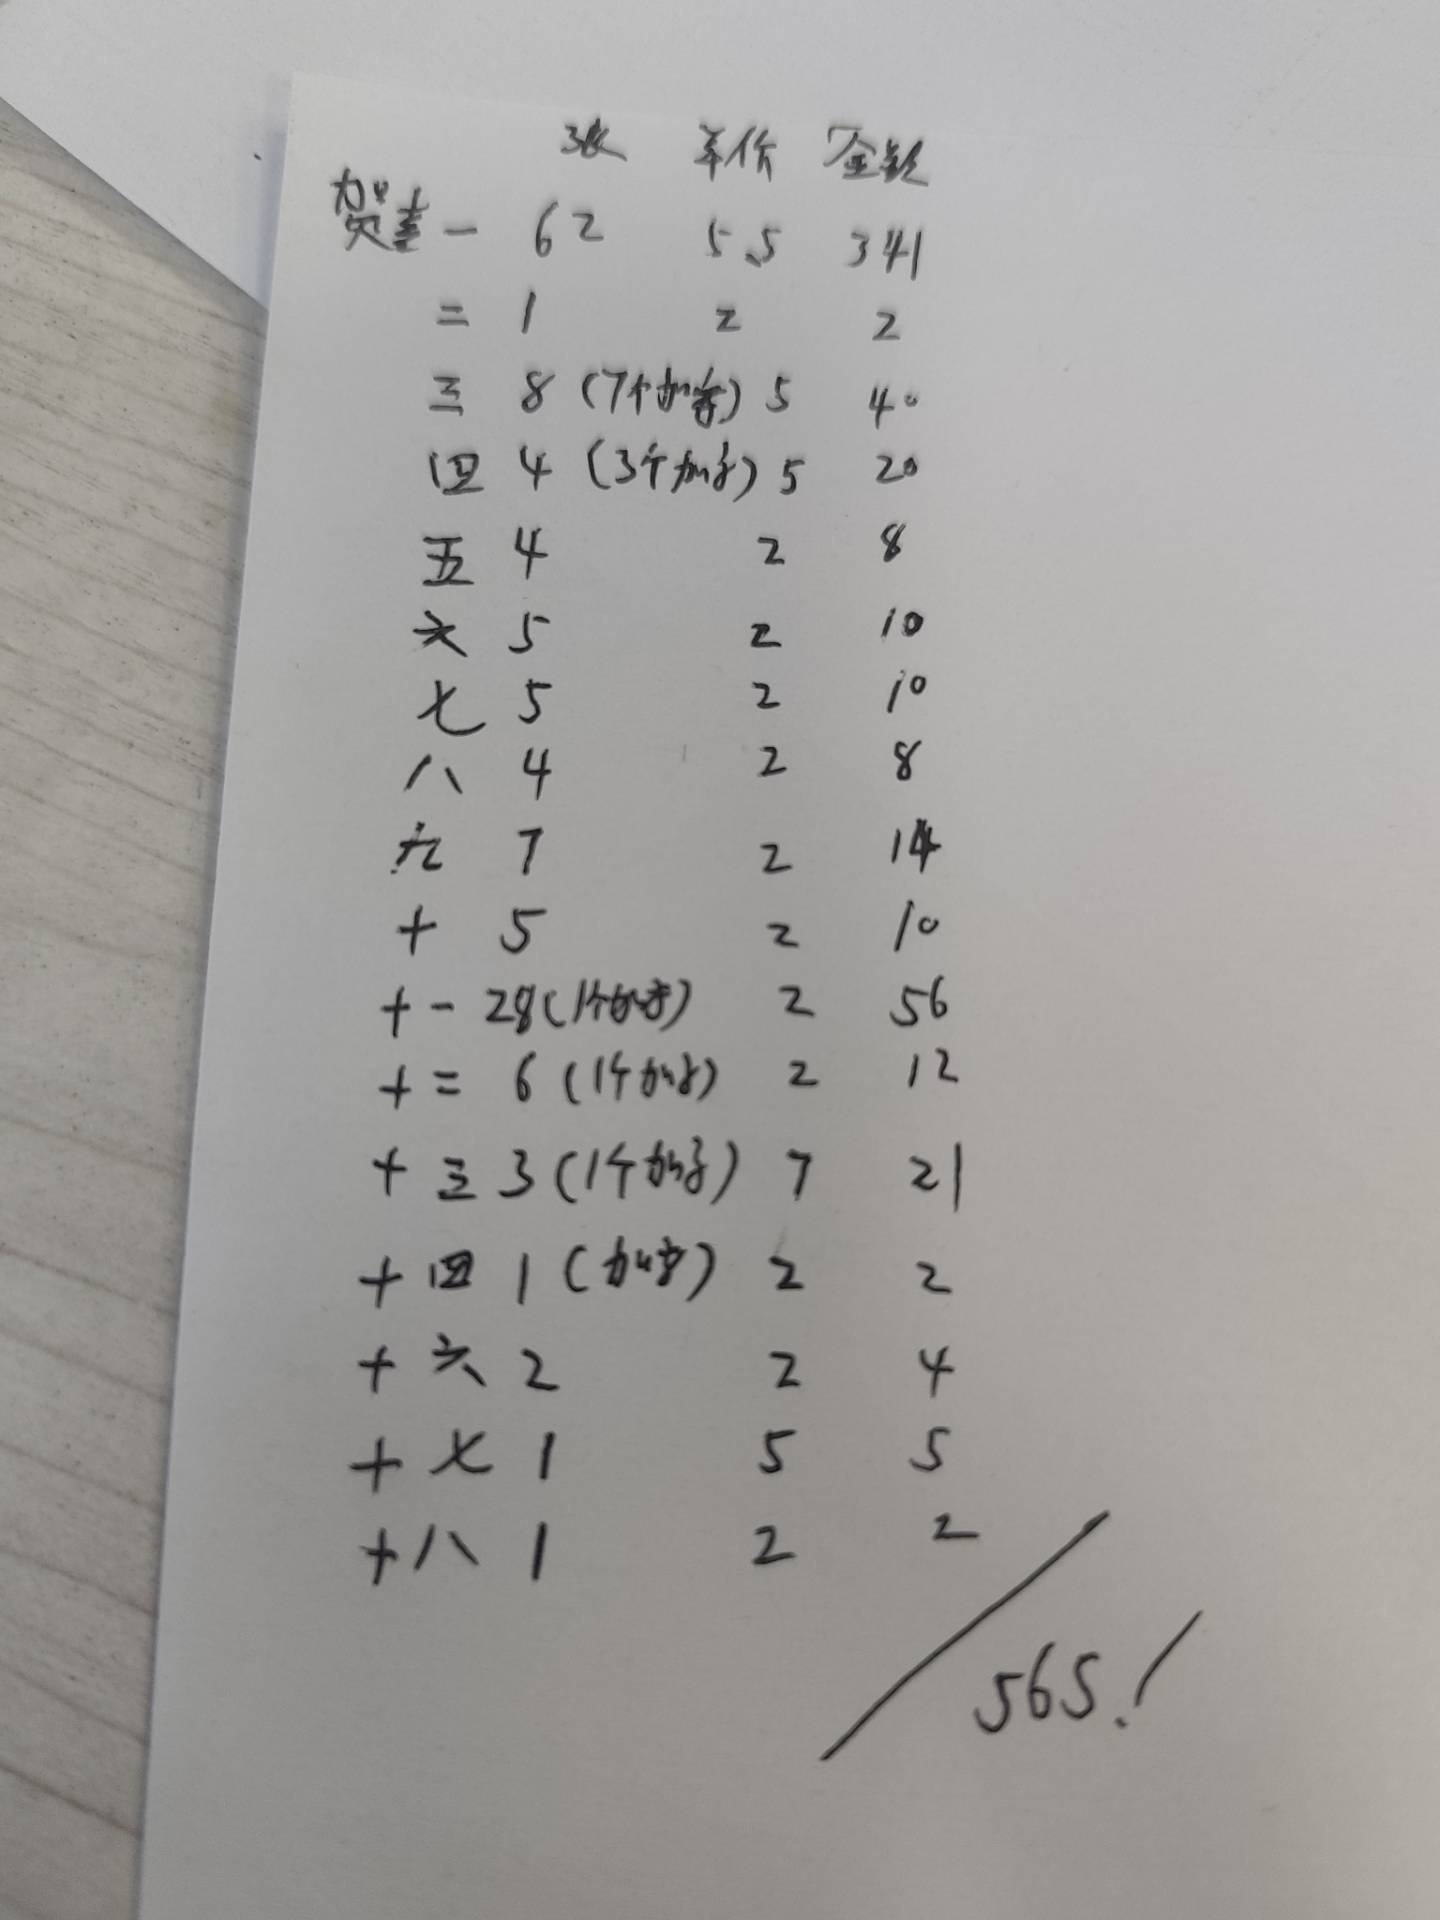 张 单价 金额
贺喜一 62 5.5 341
二 1 2 2
三 8 (7个加字) 5 40
四 4 (3个加字) 5 20
五 4 2 8
六 5 2 10
七 5 2 10
八 4 2 8
九 7 2 14
十 5 2 10
十一 28 (1个加字) 2 56
十二 6 (1个加字) 2 12
十三 3 (1个加字) 7 21
十四 1 (加字) 2 2
十六 2 2 4
十七 1 5 5
十八 1 2 2
565.